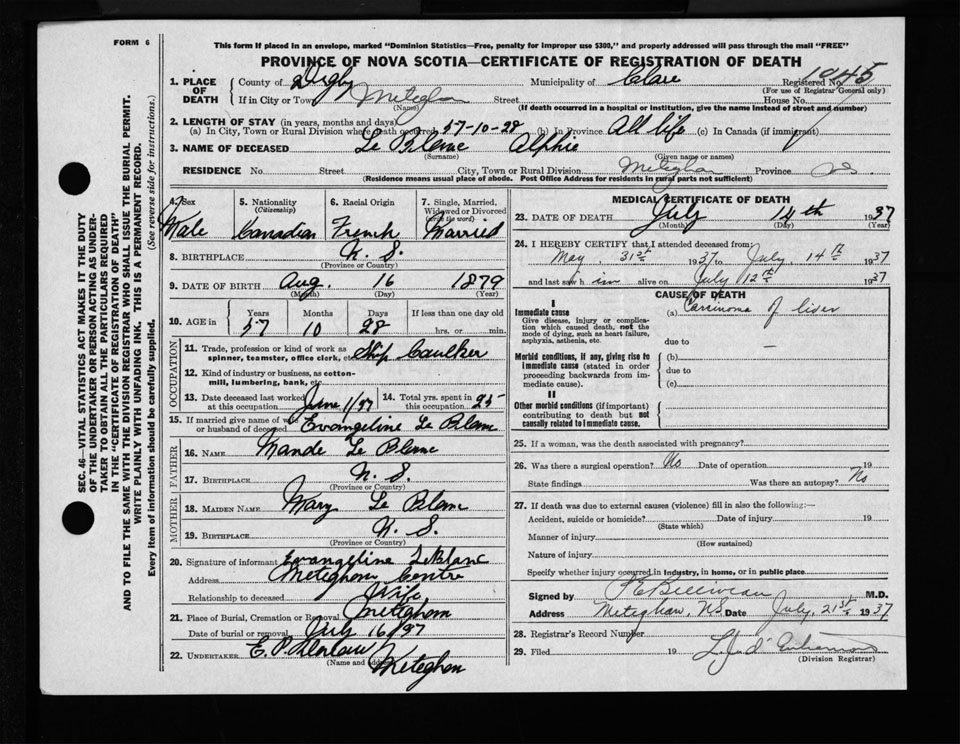 FORM 6
This form if placed in an envelope, marked "Dominion Statistics—Free, penalty for improper use $300," and properly addressed will pass through the mail "FREE"
PROVINCE OF NOVA SCOTIA—CERTIFICATE OF REGISTRATION OF DEATH
1. PLACE OF DEATH
County of Digby Municipality of Clare Registered No. 1045
(For use of Registrar General only)
If in City or Town Meteghan Street House No.
(Name) (If death occurred in a hospital or institution, give the name instead of street and number)
2. LENGTH OF STAY (in years, months and days)
(a) In City, Town or Rural Division where death occurred 57-10-28 (b) In Province All life (c) In Canada (if immigrant)
3. NAME OF DECEASED Le Blanc Alphie
(Surname) (Given name or names)
RESIDENCE No. Street City, Town or Rural Division Meteghan Province
(Residence means usual place of abode. Post Office Address for residents in rural parts not sufficient)
4. Sex 5. Nationality (Citizenship) 6. Racial Origin 7. Single, Married, Widowed or Divorced (write the word)
Male Canadian French Married
8. BIRTHPLACE N. S.
(Province or Country)
9. DATE OF BIRTH Aug. 16 1879
(Month) (Day) (Year)
10. AGE in Years Months Days If less than one day old
57 10 28 hrs. or min.
OCCUPATION
11. Trade, profession or kind of work as spinner, teamster, office clerk, etc. Ship Caulker
12. Kind of industry or business, as cotton-mill, lumbering, bank, etc.
13. Date deceased last worked at this occupation June 1/37 14. Total yrs. spent in this occupation 25
15. If married give name of wife or husband of deceased Evangeline Le Blanc
FATHER
16. NAME Mande Le Blanc
17. BIRTHPLACE N. S.
(Province or Country)
MOTHER
18. MAIDEN NAME Mary Le Blanc
19. BIRTHPLACE N. S.
(Province or Country)
20. Signature of informant Evangeline LeBlanc
Address Meteghan Centre
Relationship to deceased Wife
21. Place of Burial, Cremation or Removal Meteghan
Date of burial or removal July 16/37
22. UNDERTAKER E. P. Meteghan
(Name and address)
MEDICAL CERTIFICATE OF DEATH
23. DATE OF DEATH July 14th 1937
(Month) (Day) (Year)
24. I HEREBY CERTIFY that I attended deceased from:
May, 31st 1937 to July, 14th 1937
and last saw him alive on July 12th 1937
CAUSE OF DEATH
I
Immediate cause (a) Carcinoma of liver
Give disease, injury or complication which caused death, not the mode of dying, such as heart failure, asphyxia, asthenia, etc.
due to —
Morbid conditions, if any, giving rise to immediate cause (stated in order proceeding backwards from immediate cause).
(b)
due to
(c)
II
Other morbid conditions (if important) contributing to death but not causally related to immediate cause.
25. If a woman, was the death associated with pregnancy?
26. Was there a surgical operation? No Date of operation 19
State findings Was there an autopsy? No
27. If death was due to external causes (violence) fill in also the following:—
Accident, suicide or homicide? Date of injury 19
(State which)
Manner of injury
(How sustained)
Nature of injury
Specify whether injury occurred in industry, in home, or in public place
Signed by Belliveau M.D.
Address Meteghan, N.S. Date July, 21st 1937
28. Registrar's Record Number
29. Filed 19
(Division Registrar)
SEC. 46—VITAL STATISTICS ACT MAKES IT THE DUTY
OF THE UNDERTAKER OR PERSON ACTING AS UNDER-
TAKER TO OBTAIN ALL THE PARTICULARS REQUIRED
IN THE "CERTIFICATE OF REGISTRATION OF DEATH"
AND TO FILE THE SAME WITH THE DIVISION REGISTRAR WHO SHALL ISSUE THE BURIAL PERMIT.
WRITE PLAINLY WITH UNFADING INK. THIS IS A PERMANENT RECORD.
Every item of information should be carefully supplied. (See reverse side for instructions.)